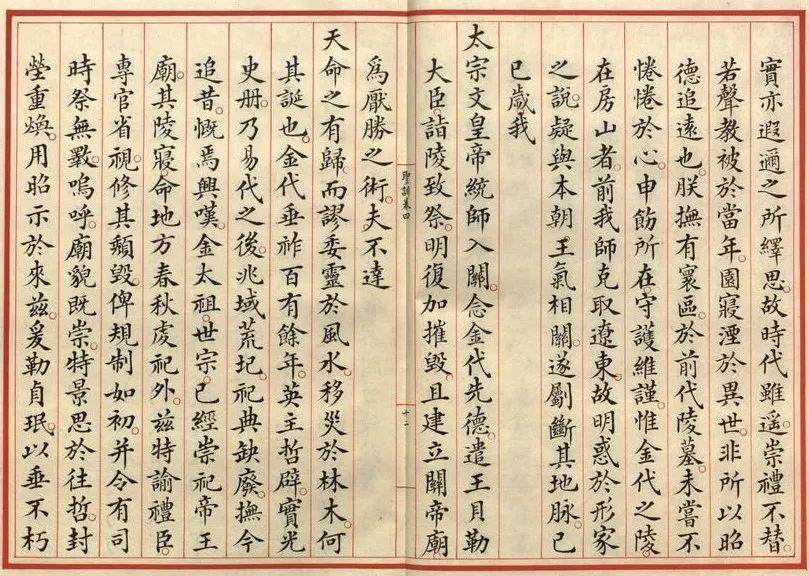 實亦遐邇之所繹思故時代雖遥崇禮不替
若聲教被於當年園寢湮於異世非所以昭
德追遠也朕撫有寰區於前代陵墓未嘗不
惓惓於心申飭所在守護維謹惟金代之陵
在房山者前我師克取遼東故明惑於形家
之説疑與本朝王氣相關遂劚斷其地脉已
巳歲我
太宗文皇帝統師入關念金代先德遣王貝勒
大臣詣陵致祭明復加摧毀且建立關帝廟
聖訓卷四
十一
爲厭勝之術夫不達
天命之有歸而謬委靈於風水移災於林木何
其誕也金代垂祚百有餘年英主哲辟實光
史册乃易代之後兆域荒圮祀典缺廢撫今
追昔慨焉興嘆金太祖世宗已經崇祀帝王
廟其陵寢命地方春秋虔祀外兹特諭禮臣
專官省視修其頽毀俾規制如初并令有司
時祭無斁嗚呼廟貌既崇特景思於往哲封
塋重煥用昭示於來兹爰勒貞珉以垂不朽